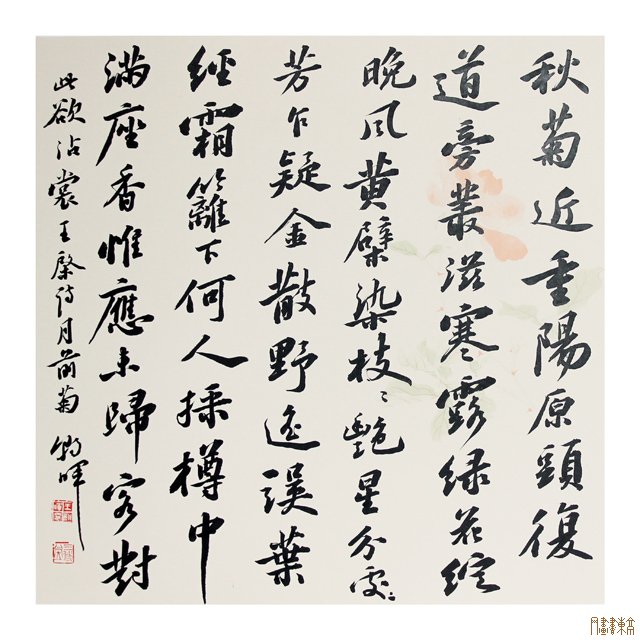 秋菊近重陽原頭復
道旁叢滋寒露緑花綻
晚風黄檗染枝〻艷星分處〻
芳乍疑金散野遙誤葉
經霜籬下何人採樽中
滿座香惟應未歸客對
此欲沾裳 王啓詩月前菊